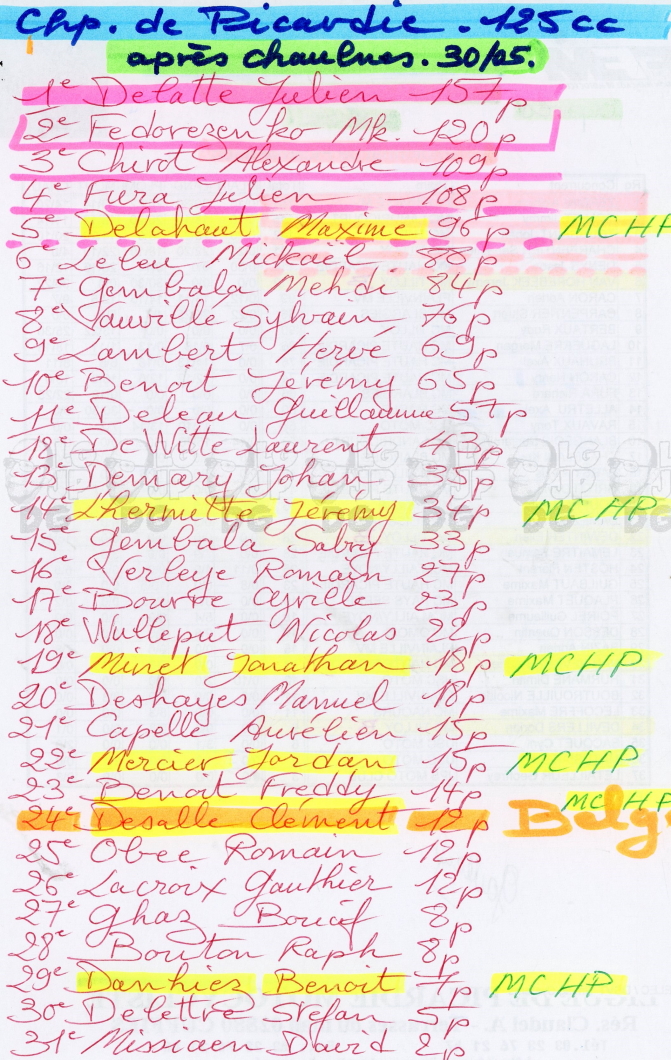 Chp. de Picardie. 125cc
après chaulnes. 30/05.
1e Delatte Julien 157p
2e Fedorezenko Mk. 120p
3e Chirot Alexandre 109p
4e Fura Julien 108p
5e Delahaut Maxime 96p MCHP
6e Leleu Mickaël 88p
7e Gembala Mehdi 84p
8e Vauville Sylvain 70p
9e Lambert Hervé 69p
10e Benoit Jérémy 65p
11e Deleau Guillaume 57p
12e De Witte Laurent 43p
13e Demary Johan 35p
14e L'hermitte Jérémy 34p MCHP
15e Gembala Sabry 33p
16e Verleye Romain 27p
17e Bourre Cyrille 23p
18e Wulleput Nicolas 22p
19e Minet Jonathan 18p MCHP
20e Deshayes Manuel 18p
21e Capelle Aurélien 15p
22e Mercier Jordan 15p MCHP
23e Benoit Freddy 14p MCHP
24e Desalle Clément 12p Belg
25e Obee Romain 12p
26e Lacroix Gauthier 12p
27e Ghaz 8p
28e Bouton Raph 8p
29e Danhiez Benoit 7p MCHP
30e Delettre Stefan 5p
31e Messiaen David 2p
LG JP DG